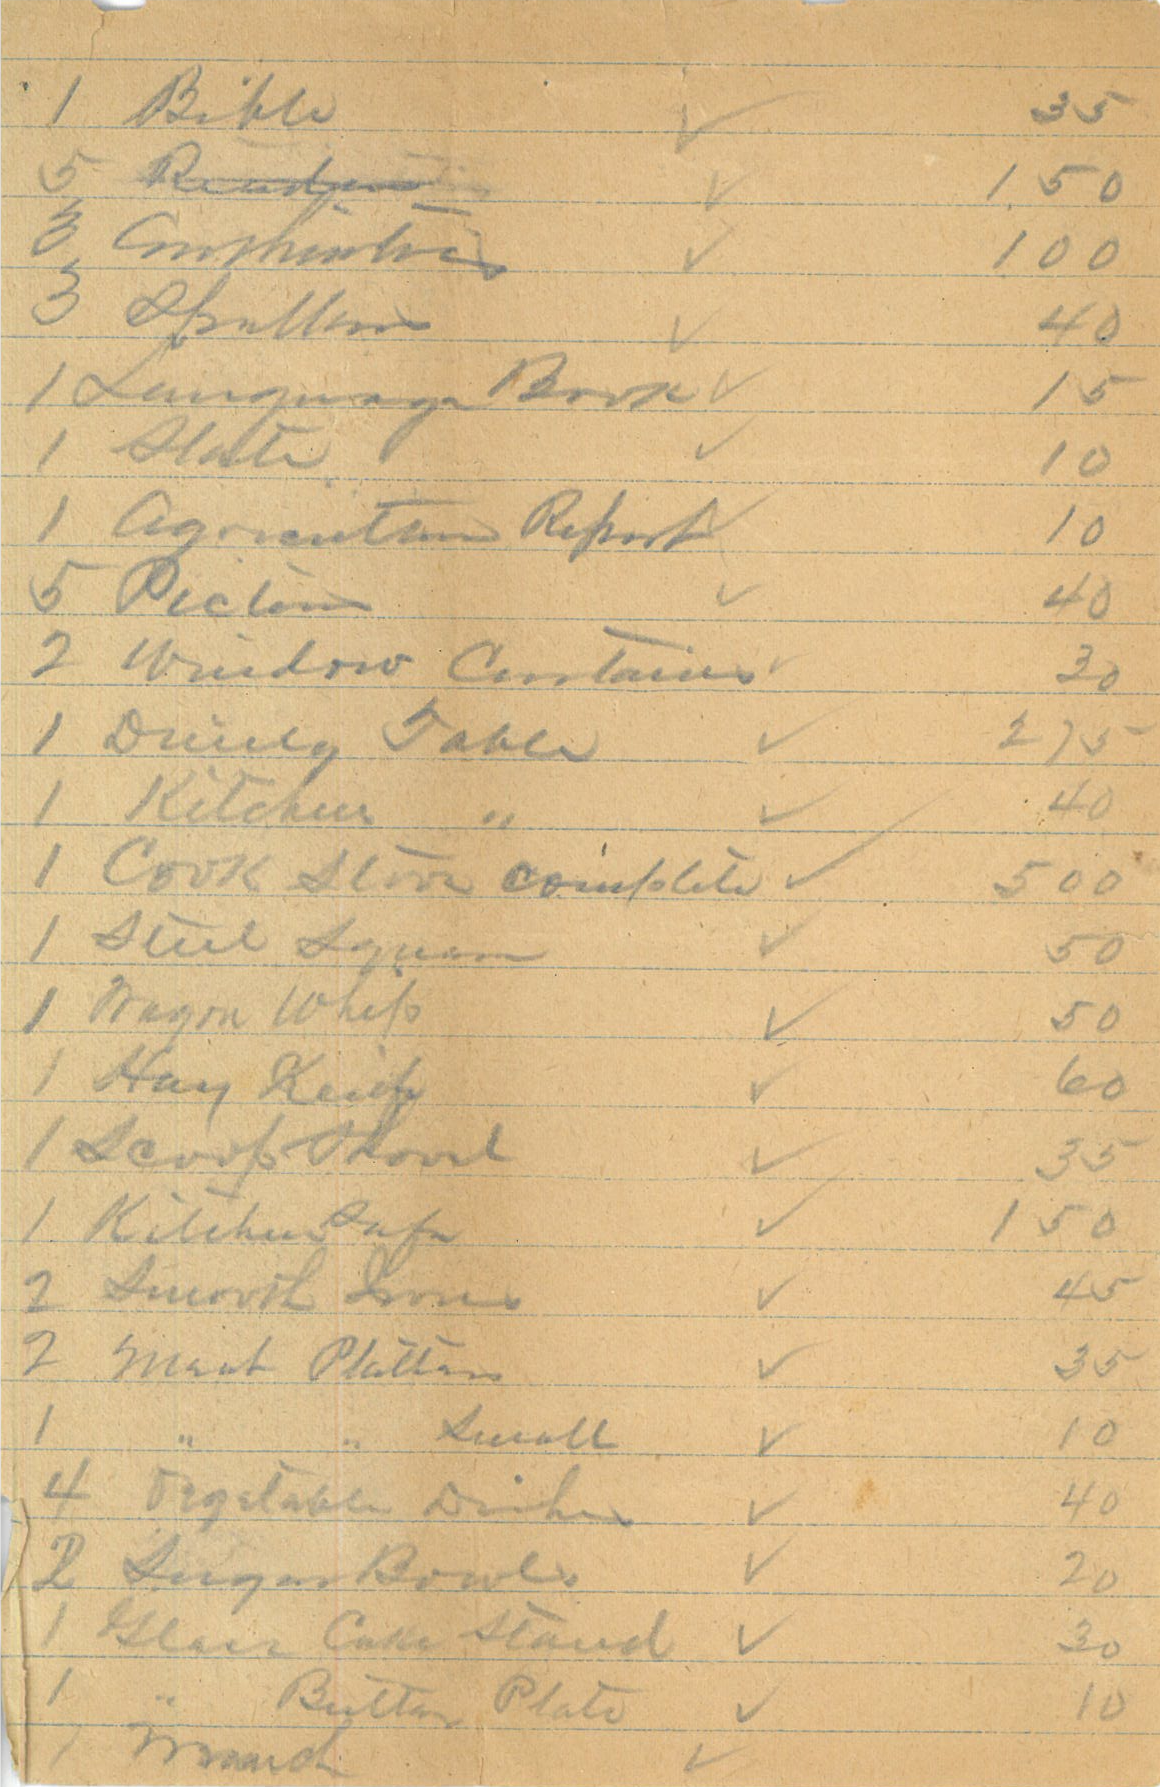 1 Bible ✓ 35
5 Readers ✓ 1.50
3 ✓ 100
3 Spellers ✓ 40
1 Language Book ✓ 15
1 Slate ✓ 10
1 Agriculture Report ✓ 10
5 Pictures ✓ 40
2 Window Curtains ✓ 30
1 Dining Table ✓ 275
1 Kitchen " ✓ 40
1 Cook Stove complete ✓ 500
1 Steel Square ✓ 50
1 Wagon Whip ✓ 50
1 Hay Knife ✓ 60
1 Scoop Shovel ✓ 35
1 Kitchen Safe ✓ 150
2 Smooth Irons ✓ 45
2 Meat Platters ✓ 35
1 " " Small ✓ 10
4 Vegetable Dishes ✓ 40
2 Sugar Bowls ✓ 20
1 Glass Cake Stand ✓ 30
1 " Butter Plate ✓ 10
1 ✓